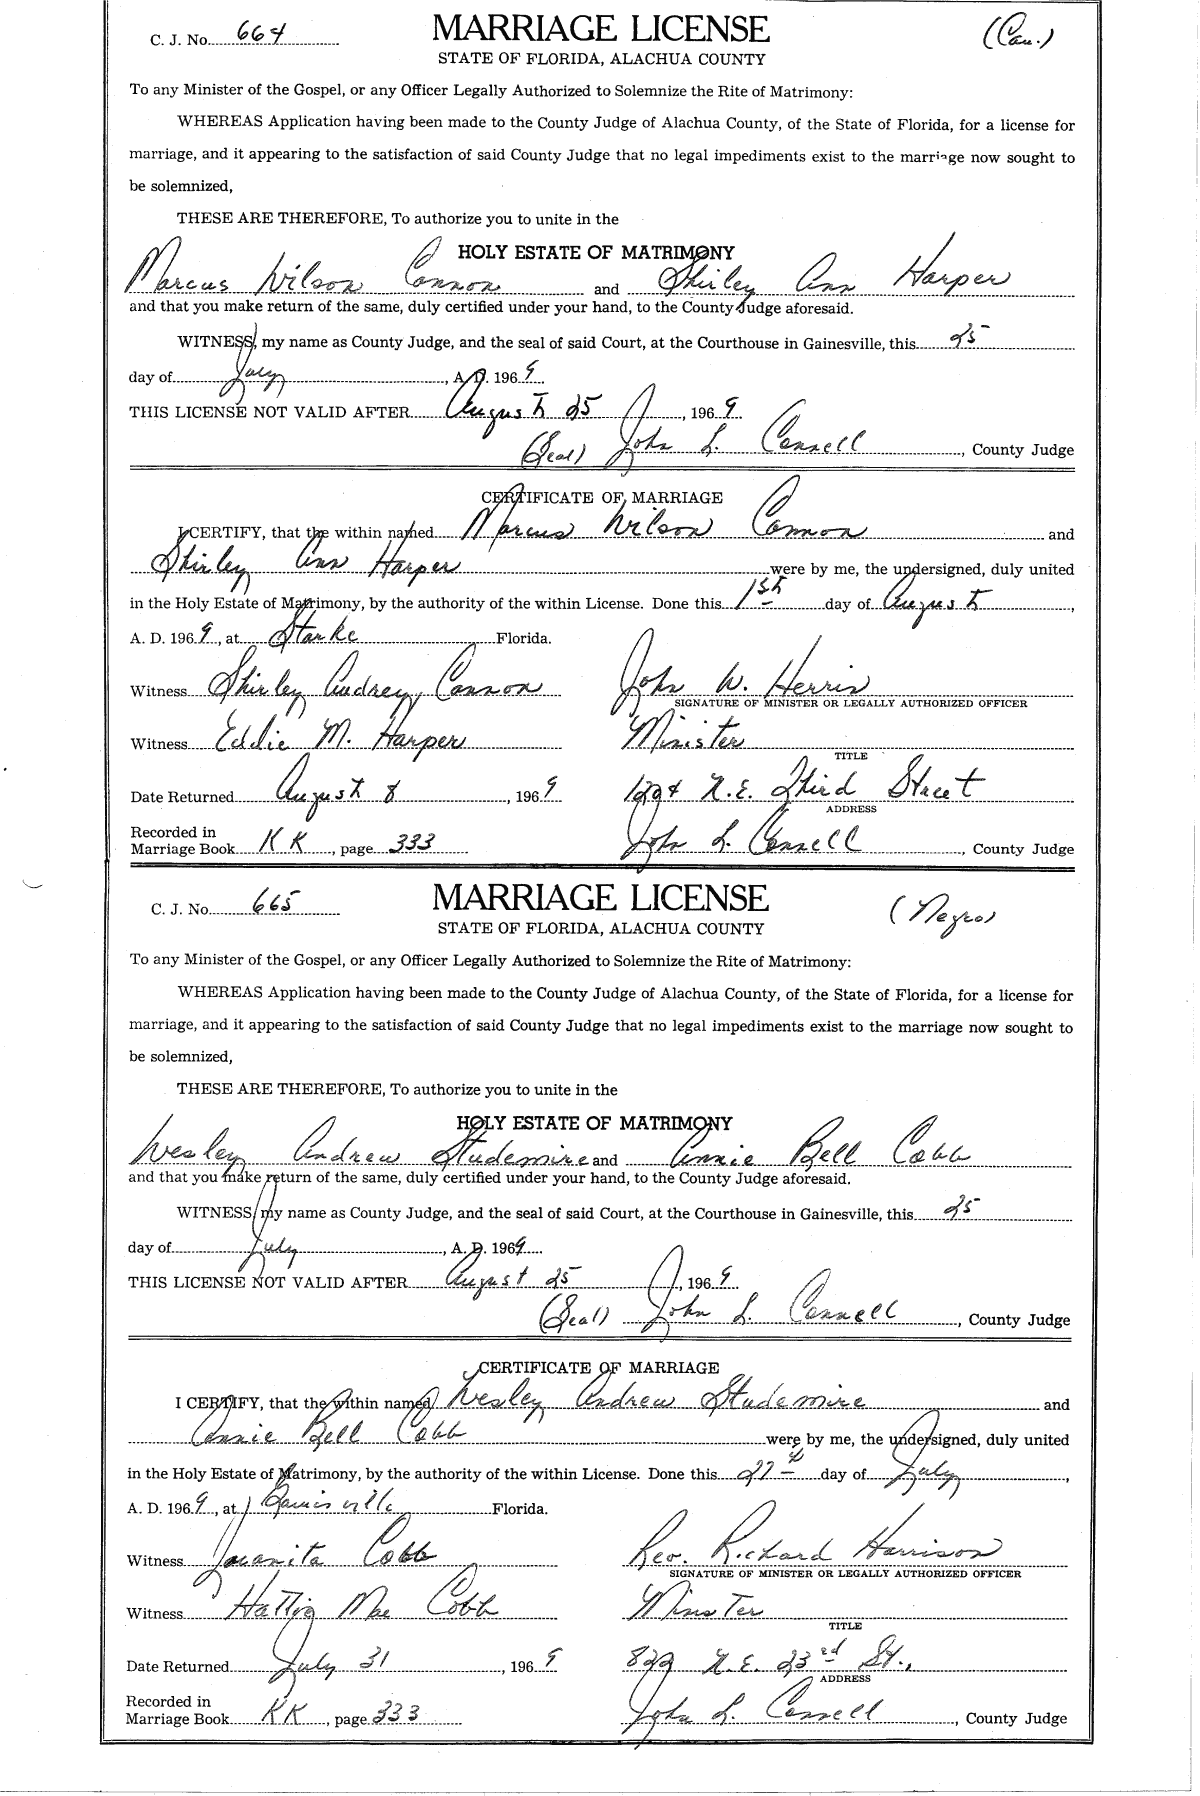 C. J. No. 664 MARRIAGE LICENSE (Cau.)
STATE OF FLORIDA, ALACHUA COUNTY
To any Minister of the Gospel, or any Officer Legally Authorized to Solemnize the Rite of Matrimony:
WHEREAS Application having been made to the County Judge of Alachua County, of the State of Florida, for a license for
marriage, and it appearing to the satisfaction of said County Judge that no legal impediments exist to the marriage now sought to
be solemnized,
THESE ARE THEREFORE, To authorize you to unite in the
HOLY ESTATE OF MATRIMONY
Marcus Wilson Cannon and Shirley Ann Harper
and that you make return of the same, duly certified under your hand, to the County Judge aforesaid.
WITNESS, my name as County Judge, and the seal of said Court, at the Courthouse in Gainesville, this 25
day of July, A. D. 1969
THIS LICENSE NOT VALID AFTER August 25, 1969
(Seal) John L. Connell, County Judge
CERTIFICATE OF MARRIAGE
I CERTIFY, that the within named Marcus Wilson Cannon and
Shirley Ann Harper were by me, the undersigned, duly united
in the Holy Estate of Matrimony, by the authority of the within License. Done this 1st day of August,
A. D. 1969, at Starke Florida.
Witness Shirley Audrey Cannon John W. Herrin
SIGNATURE OF MINISTER OR LEGALLY AUTHORIZED OFFICER
Witness Eddie M. Harper Minister
TITLE
Date Returned August 8, 1969 1224 N.E. Third Street
ADDRESS
Recorded in
Marriage Book KK, page 333 John L. Connell, County Judge
C. J. No. 665 MARRIAGE LICENSE (Negro)
STATE OF FLORIDA, ALACHUA COUNTY
To any Minister of the Gospel, or any Officer Legally Authorized to Solemnize the Rite of Matrimony:
WHEREAS Application having been made to the County Judge of Alachua County, of the State of Florida, for a license for
marriage, and it appearing to the satisfaction of said County Judge that no legal impediments exist to the marriage now sought to
be solemnized,
THESE ARE THEREFORE, To authorize you to unite in the
HOLY ESTATE OF MATRIMONY
Wesley Andrew Studemire and Annie Bell Cobb
and that you make return of the same, duly certified under your hand, to the County Judge aforesaid.
WITNESS, my name as County Judge, and the seal of said Court, at the Courthouse in Gainesville, this 25
day of July, A. D. 1969
THIS LICENSE NOT VALID AFTER August 25, 1969
(Seal) John L. Connell, County Judge
CERTIFICATE OF MARRIAGE
I CERTIFY, that the within named Wesley Andrew Studemire and
Annie Bell Cobb were by me, the undersigned, duly united
in the Holy Estate of Matrimony, by the authority of the within License. Done this 27th day of July,
A. D. 1969, at Gainesville Florida.
Witness Juanita Cobb Rev. Richard Harrison
SIGNATURE OF MINISTER OR LEGALLY AUTHORIZED OFFICER
Witness Hattie Mae Cobb Minister
TITLE
Date Returned July 31, 1969 822 N.E. 23rd St.,
ADDRESS
Recorded in
Marriage Book KK, page 333 John L. Connell, County Judge